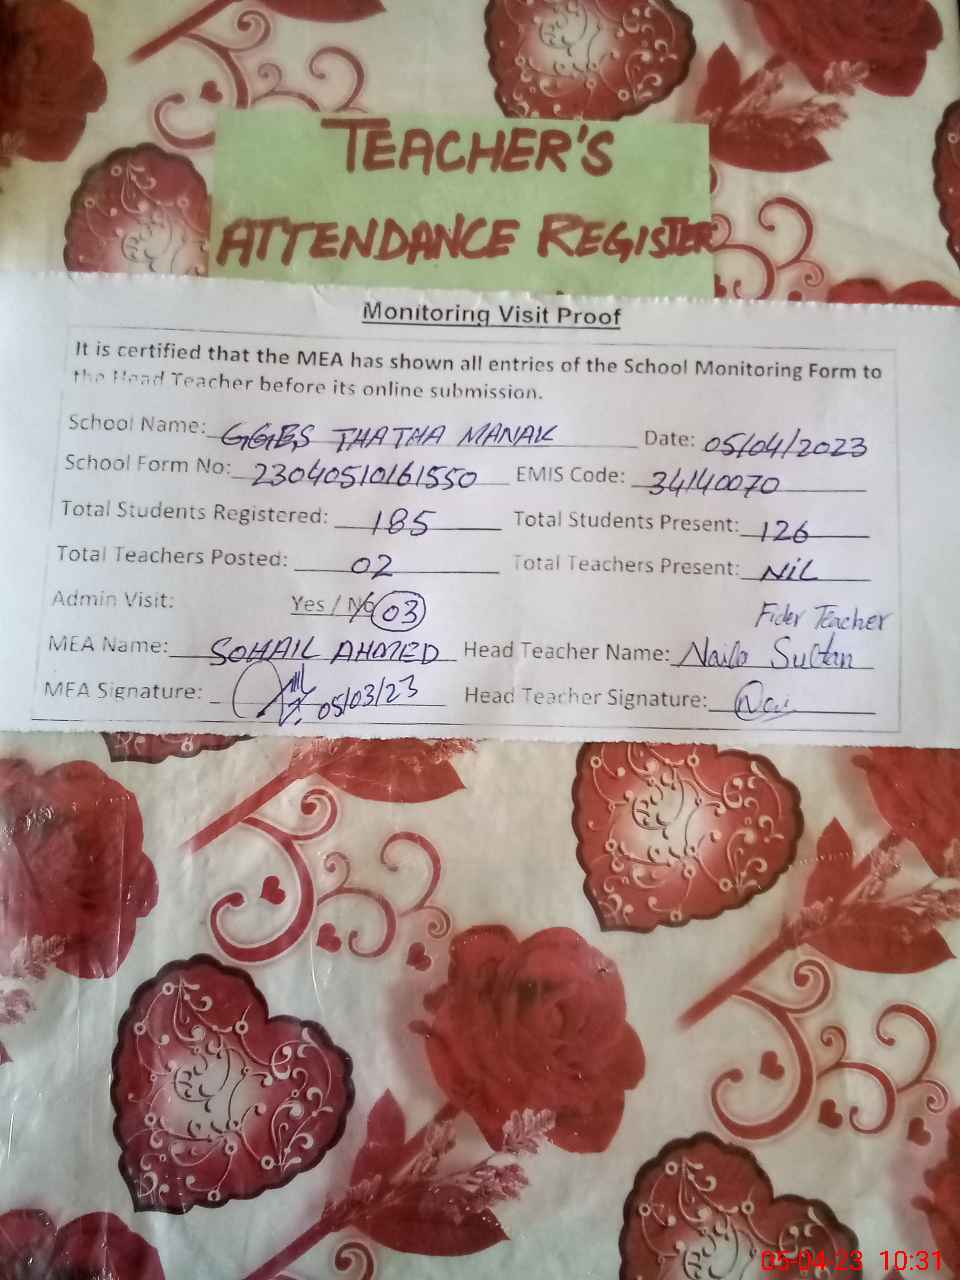 TEACHER'S
ATTENDANCE REGISTER
Monitoring Visit Proof
It is certified that the MEA has shown all entries of the School Monitoring Form to
the Head Teacher before its online submission.
School Name: GGES THATHA MANAK Date: 05/04/2023
School Form No: 23040510161550 EMIS Code: 34140070
Total Students Registered: 185 Total Students Present: 126
Total Teachers Posted: 02 Total Teachers Present: NIL
Admin Visit: Yes / No 03 Fider Teacher
MEA Name: SOHAIL AHMED Head Teacher Name: Naila Sultan
MEA Signature: 05/03/23 Head Teacher Signature: Nai
05-04-23 10:31